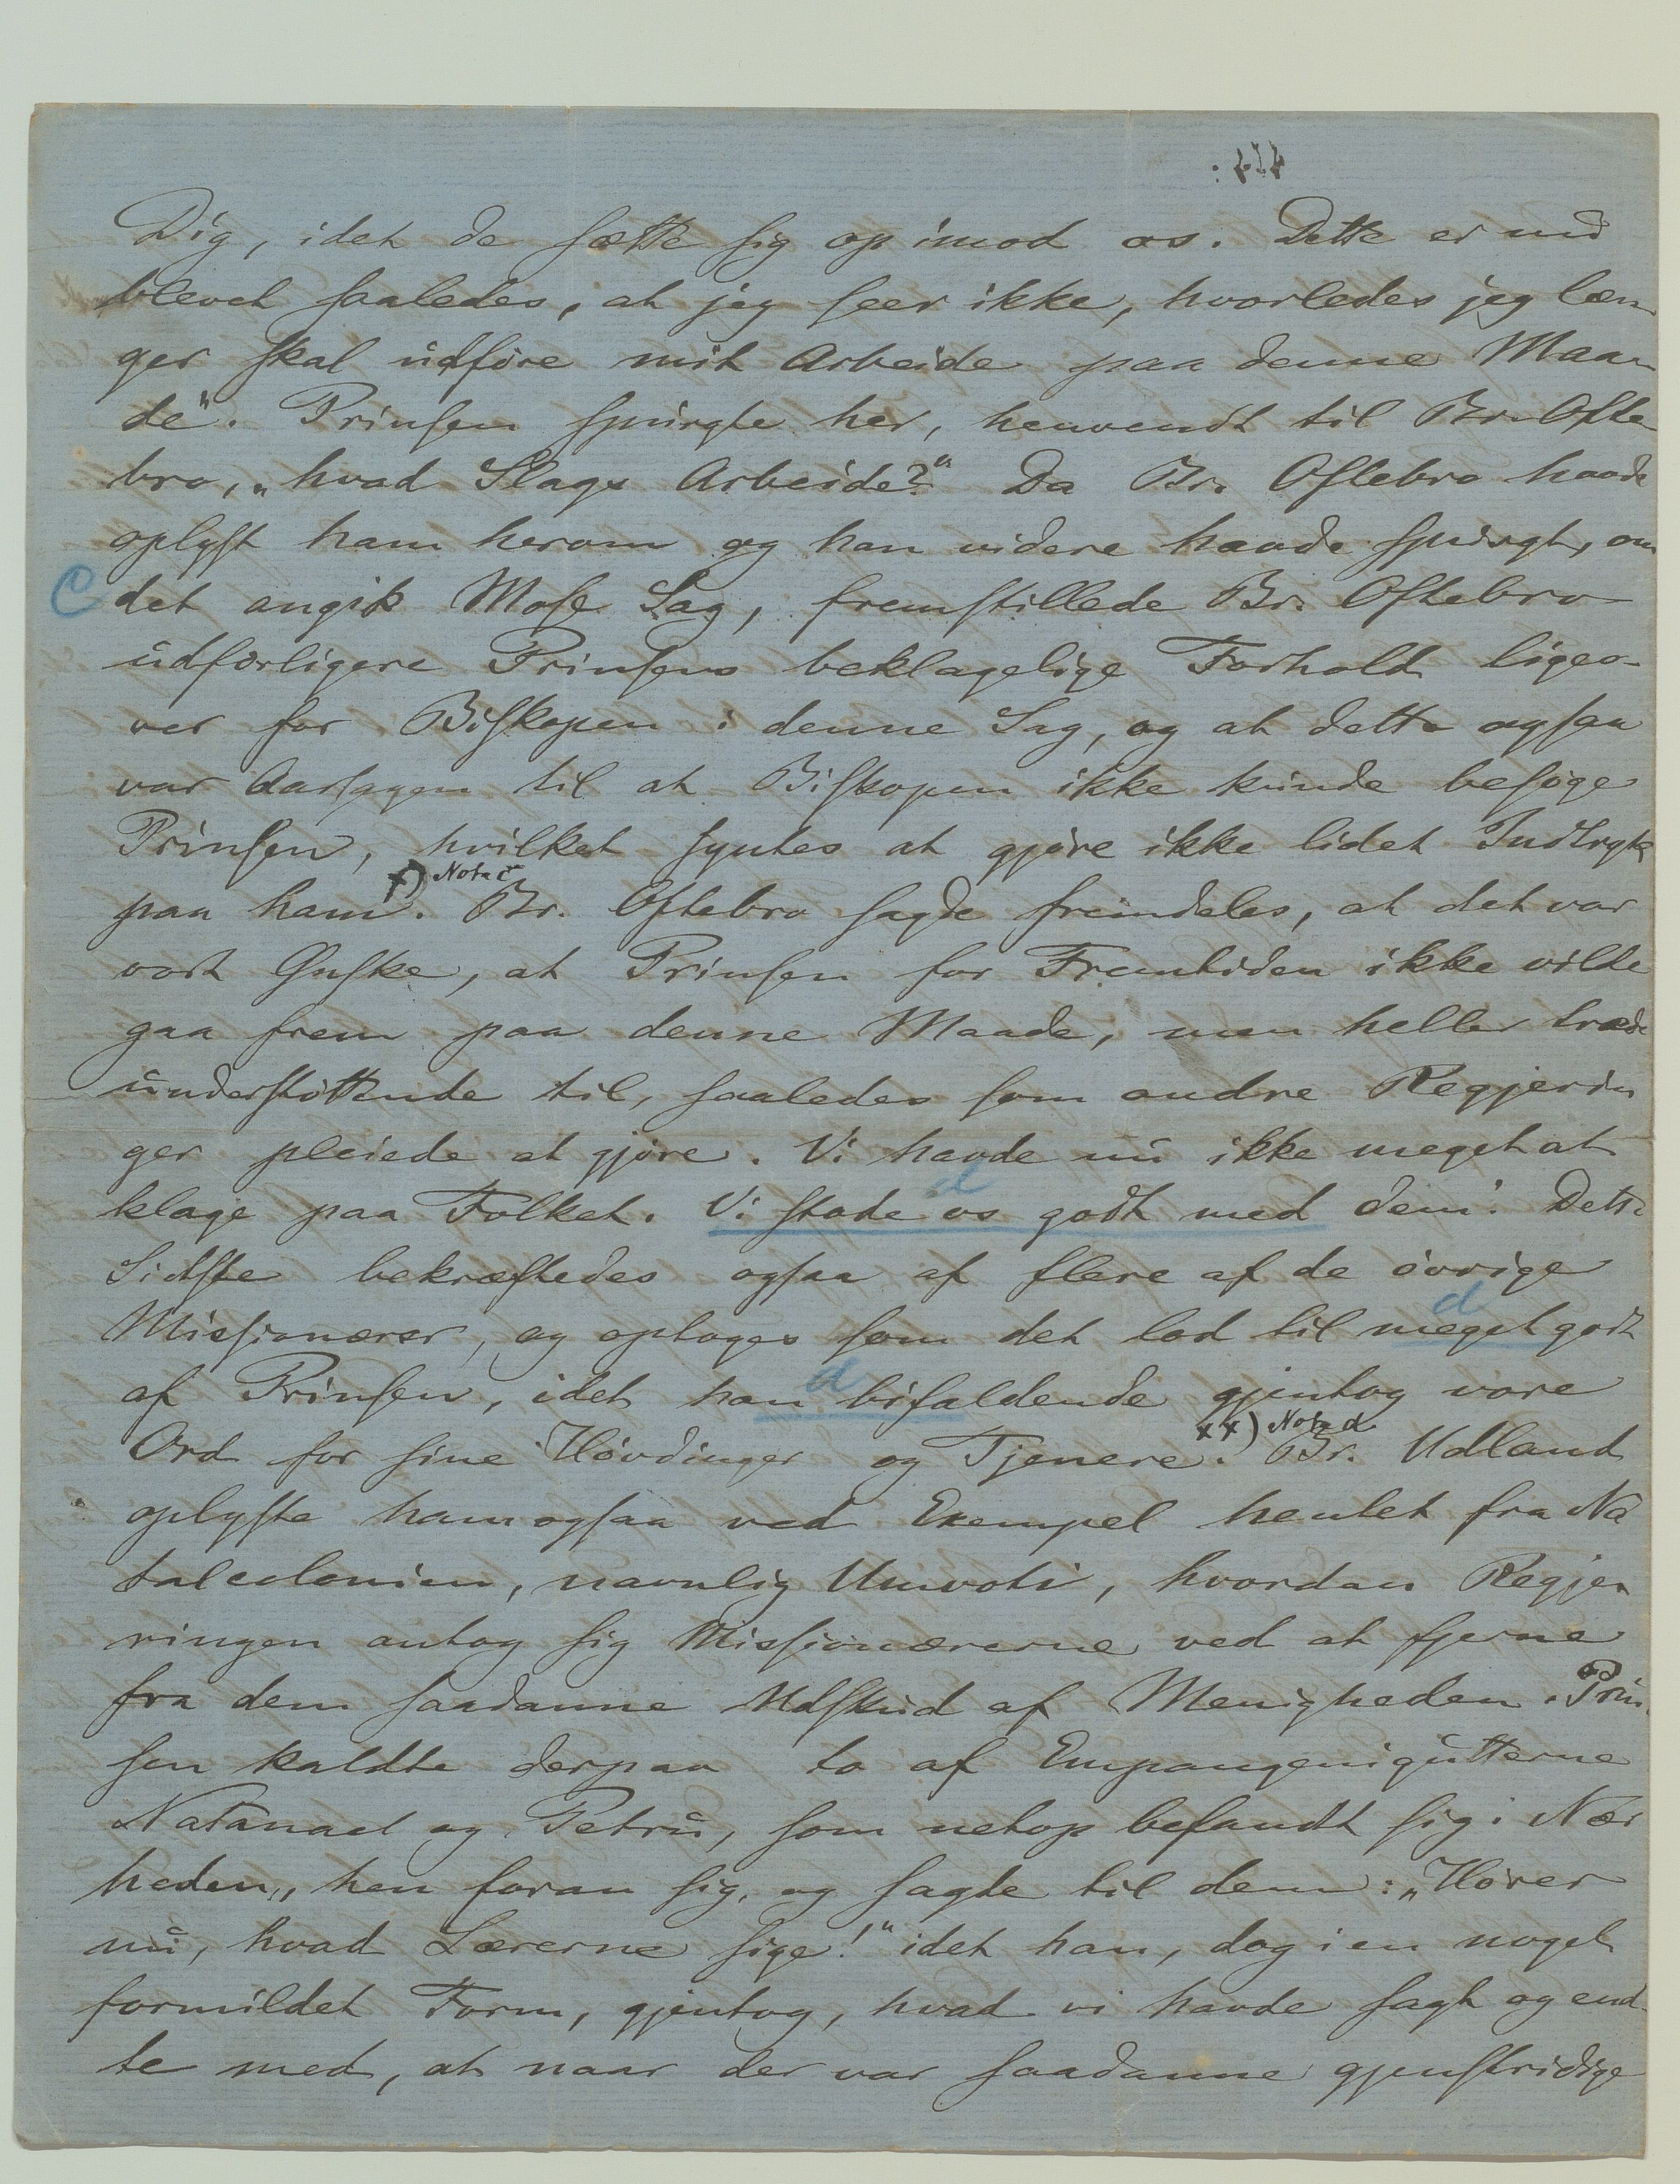 Dig, idet de sætte sig op imod os. Dette er nu
blevet saaledes, at jeg seer ikke, hvorledes jeg læn
ger skal udføre mit Arbeide paa denne Maa-
de". Prinsen spurgte her, henvendt til Br. Ofte-
bro, "hvad Slags Arbeide?" Da Br. Oftebro havde
oplyst ham herom og han videre havde spurgt, om
C det angik Mose Sag, fremstillede Br. Oftebro
udførligere Prinsens beklagelige Forhold ligeo-
ver for Biskopen i denne Sag, og at dette ogsaa
var Aarsagen til at Biskopen ikke kunde besøge
Prinsen, hvilket syntes at gjøre ikke lidet Indtryk
x) Nota c
paa ham. Br. Oftebro sagde fremdeles, at det var
vort Ønske, at Prinsen for Fremtiden ikke vilde
gaa frem paa denne Maade, men heller træde
understøttende til, saaledes som andre Regjerin
ger pleiede at gjøre. Vi havde nu ikke meget at
d
klage paa Folket. Vi stode os godt med dem. Dette
Sidste bekræftedes ogsaa af flere af de øvrige
d
Missionærer, og optoges som det lod til meget godt
d
af Prinsen, idet han bifaldende gjentog vore
xx) Nota d
Ord for sine Høvdinger og Tjenere. Br. Udland
oplyste ham ogsaa ved Exempel hentet fra Na
talcolonien, navnlig Umvoti, hvordan Regje
ringen antog sig Missionærerne ved at fjerne
fra dem saadanne Udskud af Menigheden. Prin
sen kaldte derpaa to af Empangenigutterne
Natanael og Petru, som netop befandt sig i Nær
heden, hen foran sig, og sagte til dem: "Hører
nu, hvad Lærerne sige!" idet han, dog i en noget
formildet Form, gjentog, hvad vi havde sagt og end-
te med, at naar der var saadanne gjenstridige